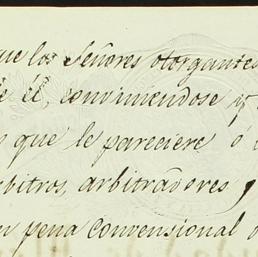 que los Señores otorgantes
él, conviniendose y
que le pareciere ó
arbitros, arbitradores,
pena convencional